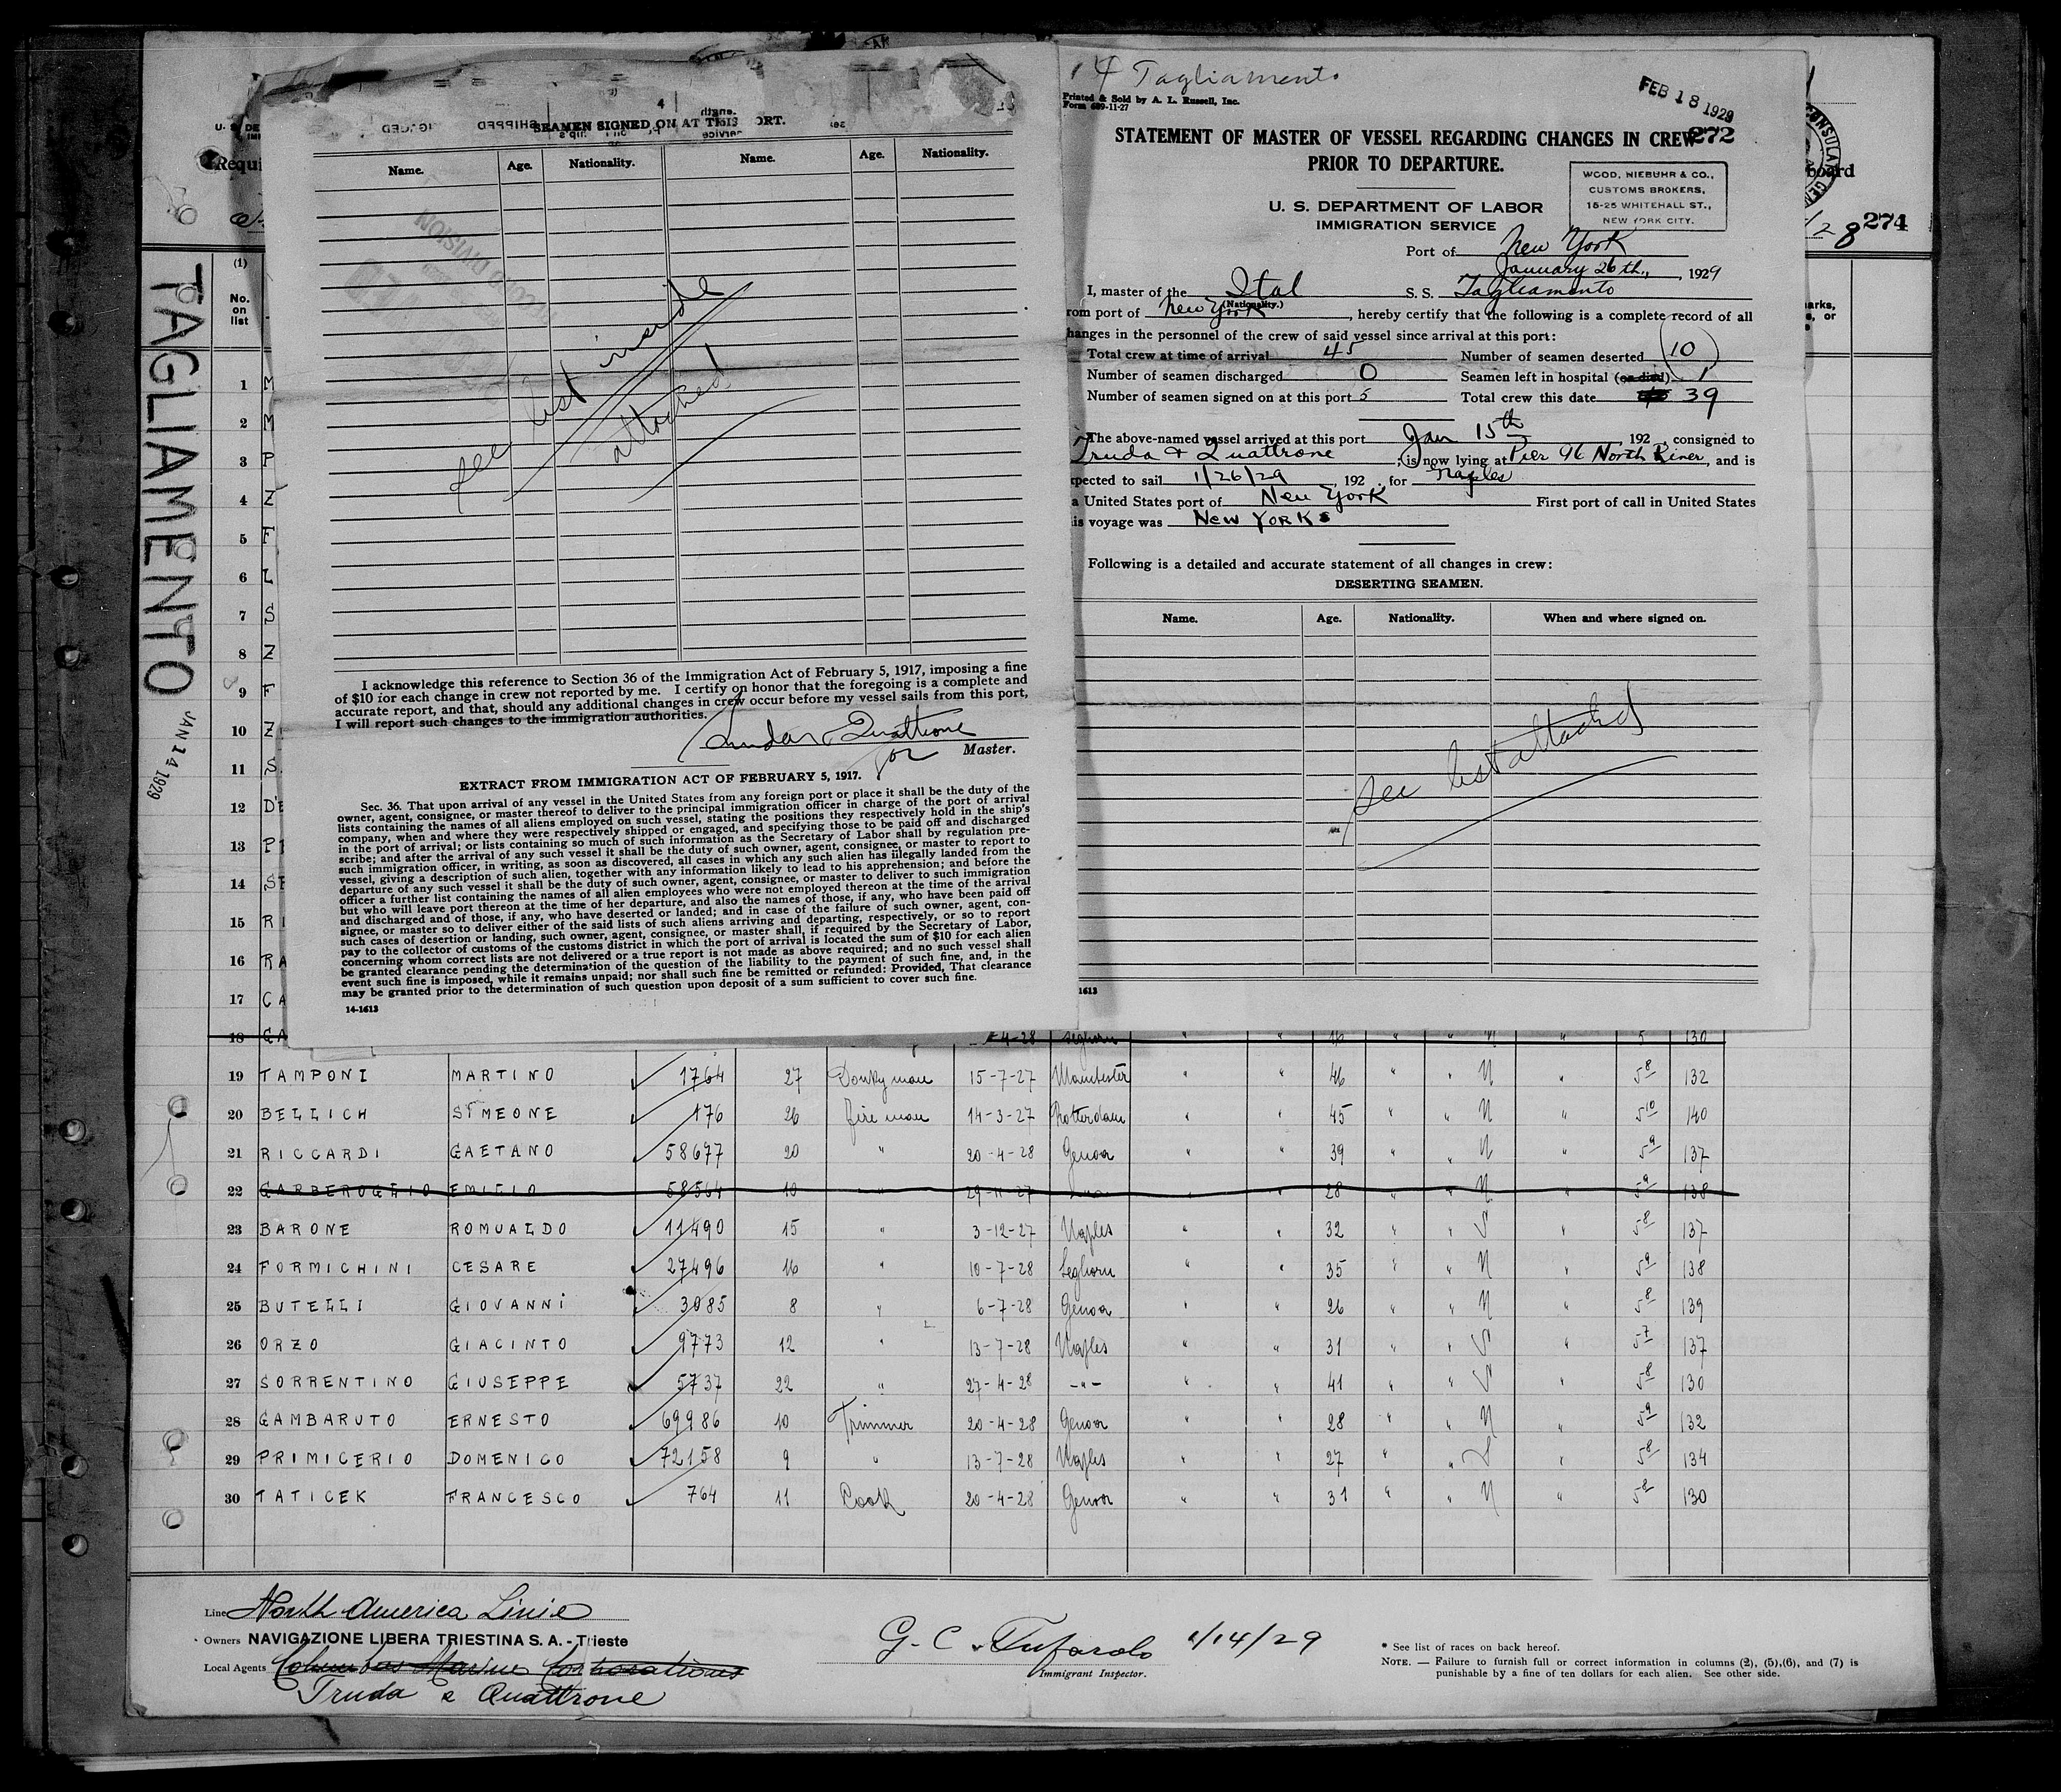 4 Tagliamento
Printed & Sold by A. L. Russell, Inc.
Form 689-11-27
FEB 18 1929
272
STATEMENT OF MASTER OF VESSEL REGARDING CHANGES IN CREW
PRIOR TO DEPARTURE.
WOOD, NIEBUHR & CO.,
CUSTOMS BROKERS,
15-25 WHITEHALL ST.,
NEW YORK CITY.
U. S. DEPARTMENT OF LABOR
IMMIGRATION SERVICE
Port of New York
January 26th, , 1929
I, master of the Ital S. S. Tagliamento
(Nationality.)
rom port of New York , hereby certify that the following is a complete record of all
hanges in the personnel of the crew of said vessel since arrival at this port:
Total crew at time of arrival 45 Number of seamen deserted (10)
Number of seamen discharged 0 Seamen left in hospital (or died) 1
Number of seamen signed on at this port 5 Total crew this date 39
The above-named vessel arrived at this port Jan 15th 192 , consigned to
Truda & Quattrone ; is now lying at Pier 96 North River, and is
xpected to sail 1/26/29 , 192 , for Naples
a United States port of New York First port of call in United States
is voyage was New Yorks
Following is a detailed and accurate statement of all changes in crew:
DESERTING SEAMEN.
Name. Age. Nationality. When and where signed on.
see list attached
1613
SEAMEN SIGNED ON AT THIS PORT.
Name. Age. Nationality. Name. Age. Nationality.
see list inside
attached
I acknowledge this reference to Section 36 of the Immigration Act of February 5, 1917, imposing a fine
of $10 for each change in crew not reported by me. I certify on honor that the foregoing is a complete and
accurate report, and that, should any additional changes in crew occur before my vessel sails from this port,
I will report such changes to the immigration authorities.
Truda & Quattrone
for Master.
EXTRACT FROM IMMIGRATION ACT OF FEBRUARY 5, 1917.
Sec. 36. That upon arrival of any vessel in the United States from any foreign port or place it shall be the duty of the
owner, agent, consignee, or master thereof to deliver to the principal immigration officer in charge of the port of arrival
lists containing the names of all aliens employed on such vessel, stating the positions they respectively hold in the ship's
company, when and where they were respectively shipped or engaged, and specifying those to be paid off and discharged
in the port of arrival; or lists containing so much of such information as the Secretary of Labor shall by regulation pre-
scribe; and after the arrival of any such vessel it shall be the duty of such owner, agent, consignee, or master to report to
such immigration officer, in writing, as soon as discovered, all cases in which any such alien has illegally landed from the
vessel, giving a description of such alien, together with any information likely to lead to his apprehension; and before the
departure of any such vessel it shall be the duty of such owner, agent, consignee, or master to deliver to such immigration
officer a further list containing the names of all alien employees who were not employed thereon at the time of the arrival
but who will leave port thereon at the time of her departure, and also the names of those, if any, who have been paid off
and discharged and of those, if any, who have deserted or landed; and in case of the failure of such owner, agent, con-
signee, or master so to deliver either of the said lists of such aliens arriving and departing, respectively, or so to report
such cases of desertion or landing, such owner, agent, consignee, or master shall, if required by the Secretary of Labor,
pay to the collector of customs of the customs district in which the port of arrival is located the sum of $10 for each alien
concerning whom correct lists are not delivered or a true report is not made as above required; and no such vessel shall
be granted clearance pending the determination of the question of the liability to the payment of such fine, and, in the
event such fine is imposed, while it remains unpaid; nor shall such fine be remitted or refunded: Provided, That clearance
may be granted prior to the determination of such question upon deposit of a sum sufficient to cover such fine.
14-1613
TAGLIAMENTO
JAN 14 1929
Requi
board
274
(1)
No. on list
1 M
2 M
3 P
4 Z
5 F
6 L
7 S
8 Z
9 F
10 Z
11 S
12 D'E
13 PI
14 SF
15 RI
16 RA
17 CA
18 GA 4-28 Leghorn " " " " N " 5 130
19 TAMPONI MARTINO 1764 27 Donkyman 15-7-27 Manchester " " 46 " " N " 5 8 132
20 BELLICH SIMEONE 176 26 fire man 14-3-27 Rotterdam " " 45 " " N " 5 10 140
21 RICCARDI GAETANO 58677 20 " 20-4-28 Genoa " " 39 " " N " 5 9 137
22 GARBEROGLIO EMILIO 58564 10 " 29-11-27 " " 28 " " N " 5 9 138
23 BARONE ROMUALDO 11490 15 " 3-12-27 Naples " " 32 " " S " 5 8 137
24 FORMICHINI CESARE 27496 16 " 10-7-28 Leghorn " " 35 " " N " 5 9 138
25 BUTELLI GIOVANNI 3085 8 " 6-7-28 Genoa " " 26 " " N " 5 8 139
26 ORZO GIACINTO 9773 12 " 13-7-28 Naples " " 31 " " S " 5 7 137
27 SORRENTINO GIUSEPPE 5737 22 " 27-4-28 -"- " " 41 " " S " 5 8 130
28 GAMBARUTO ERNESTO 69986 10 Trimmer 20-4-28 Genoa " " 28 " " N " 5 9 132
29 PRIMICERIO DOMENICO 72158 9 " 13-7-28 Naples " " 27 " " S " 5 8 134
30 TATICEK FRANCESCO 764 11 Cook 20-4-28 Genoa " " 31 " " N " 5 8 130
Line North America Linie
Owners NAVIGAZIONE LIBERA TRIESTINA S. A. - Trieste
Local Agents Columbus Marine Corporations
Truda e Quattrone
G. C. Tufarolo 1/14/29
Immigrant Inspector.
* See list of races on back hereof.
NOTE. — Failure to furnish full or correct information in columns (2), (5),(6), and (7) is
punishable by a fine of ten dollars for each alien. See other side.